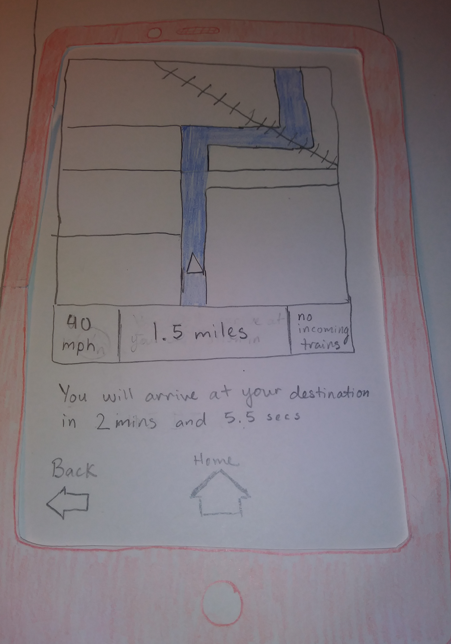 40
mph
1.5 miles
no
incoming
trains
You will arrive at your destination
in 2 mins and 5.5 secs
Back
Home